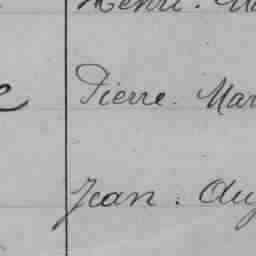 Henri.
Pierre. Mar
Jean. Aug